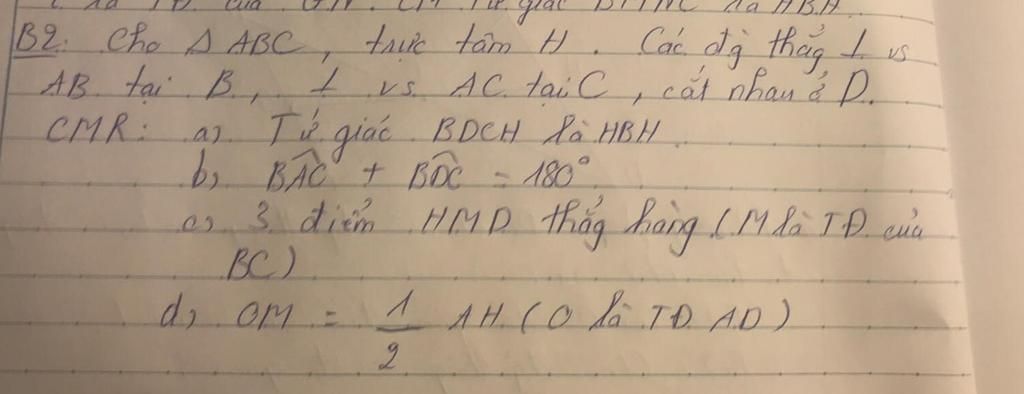 của
B2: Cho Δ ABC, trực tâm H. Các đg thẳg ⊥ vs
AB tại B, ⊥ vs. AC tại C, cắt nhau ở D.
CMR: a, Tứ giác BDCH là HBH.
b, \widehat{BAC} + \widehat{BDC} = 180°
c, 3 điểm HMD thẳg hàng (M là TĐ của
BC)
d, OM = \frac{1}{2} AH (O là TĐ AD)